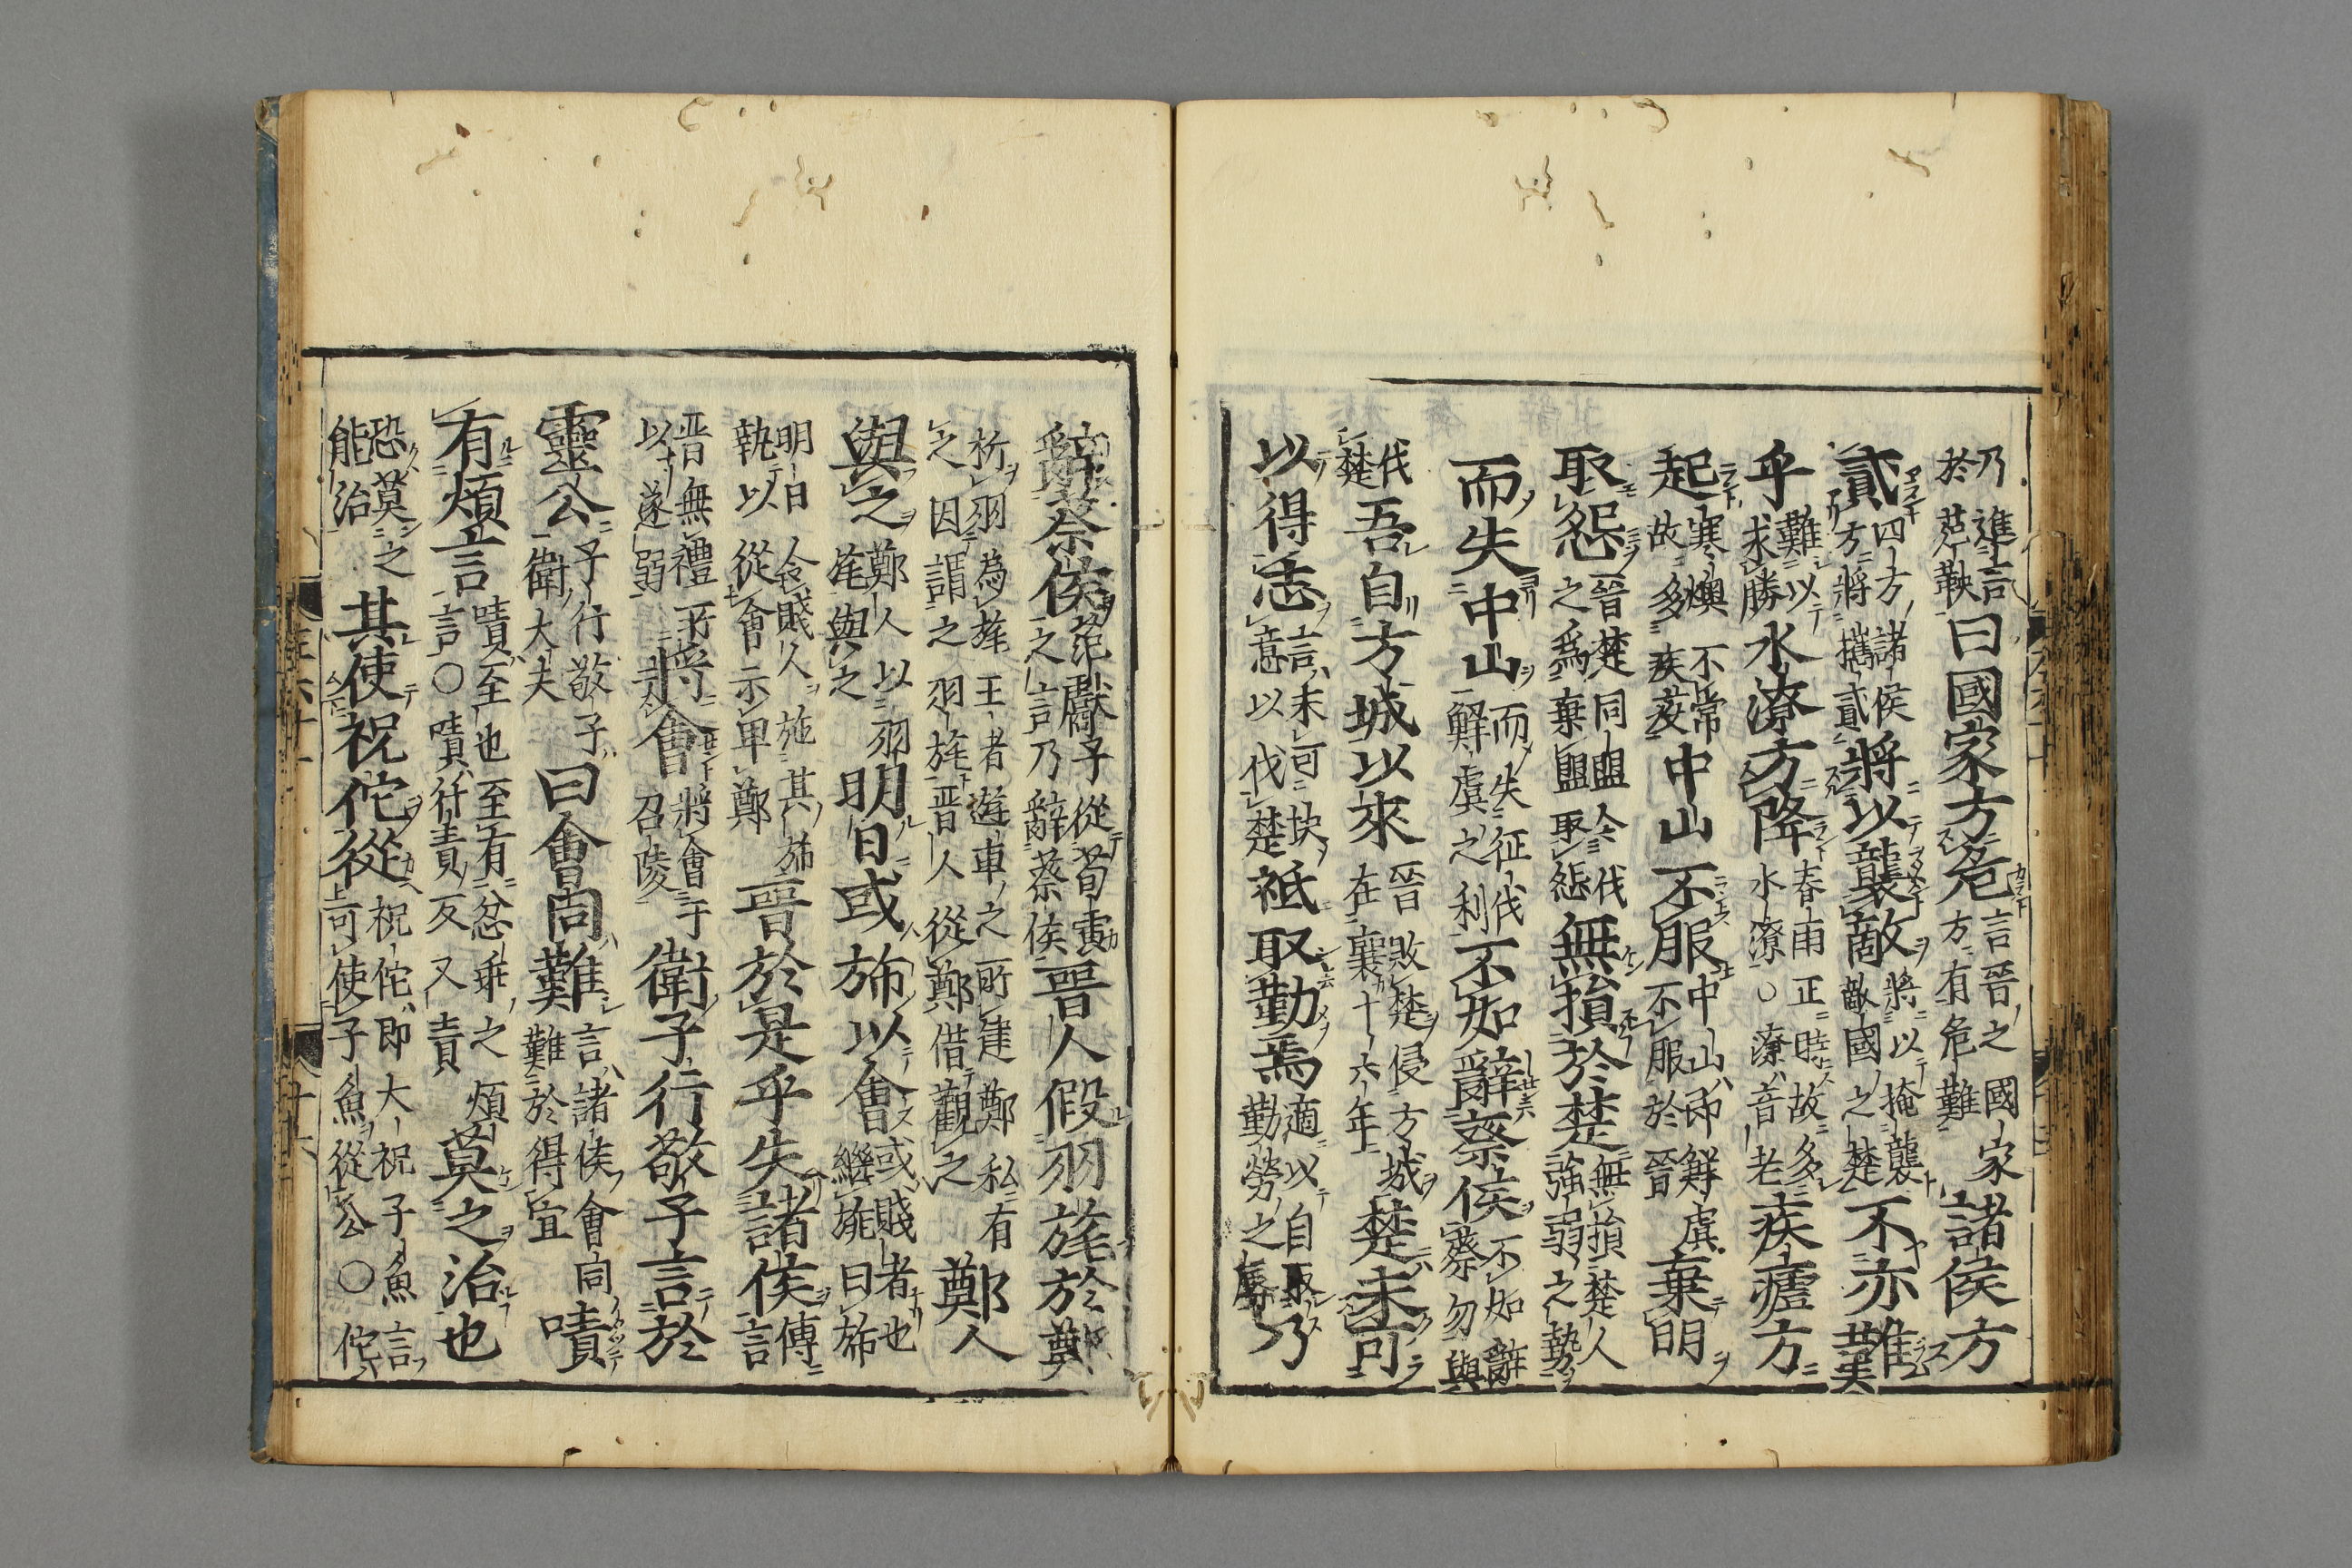 乃進言於范鞅曰國家方危言晉之國家方有危難諸侯方
貳四方諸侯方將攜貳將以襲敵將以掩襲敵國之楚不亦難
乎難以求勝水潦方降春雨正時故多水潦○潦音老疾瘧方
起寒燠不常故多疾疫中山不服中山即鮮虞不服於晉棄明
取怨晉楚同盟今伐之為棄盟取怨無損於楚無損楚人強弱之勢
而失中山而失征伐鮮虞之利不如辭蔡侯不如辭蔡勿與
伐楚吾自方城以來晉敗楚侵方城在襄十六年楚未可
以得志言未可決意以伐楚祗取勤焉適以自取勤勞之辱乃
辭蔡侯范獻子從荀寅之言乃辭蔡侯晉人假羽旄於鄭
析羽為旌王者遊車之所建鄭私有之因謂之羽旄晉人從鄭借觀之鄭人
與之鄭人以羽旄與之明日或旆以會或賤者也繼旐曰旆
明日令賤人施其旆執以從會示卑鄭晉於是乎失諸侯傳言
晉無禮所以遂弱將會將會于召陵衛子行敬子言於
靈公子行敬子衛大夫曰會同難言諸侯會同難於得宜嘖
有煩言嘖至也至有忿乖之煩言○嘖仕責反又責莫之治也
恐莫之能治其使祝佗從祝佗即大祝子魚言可使子魚從公○佗